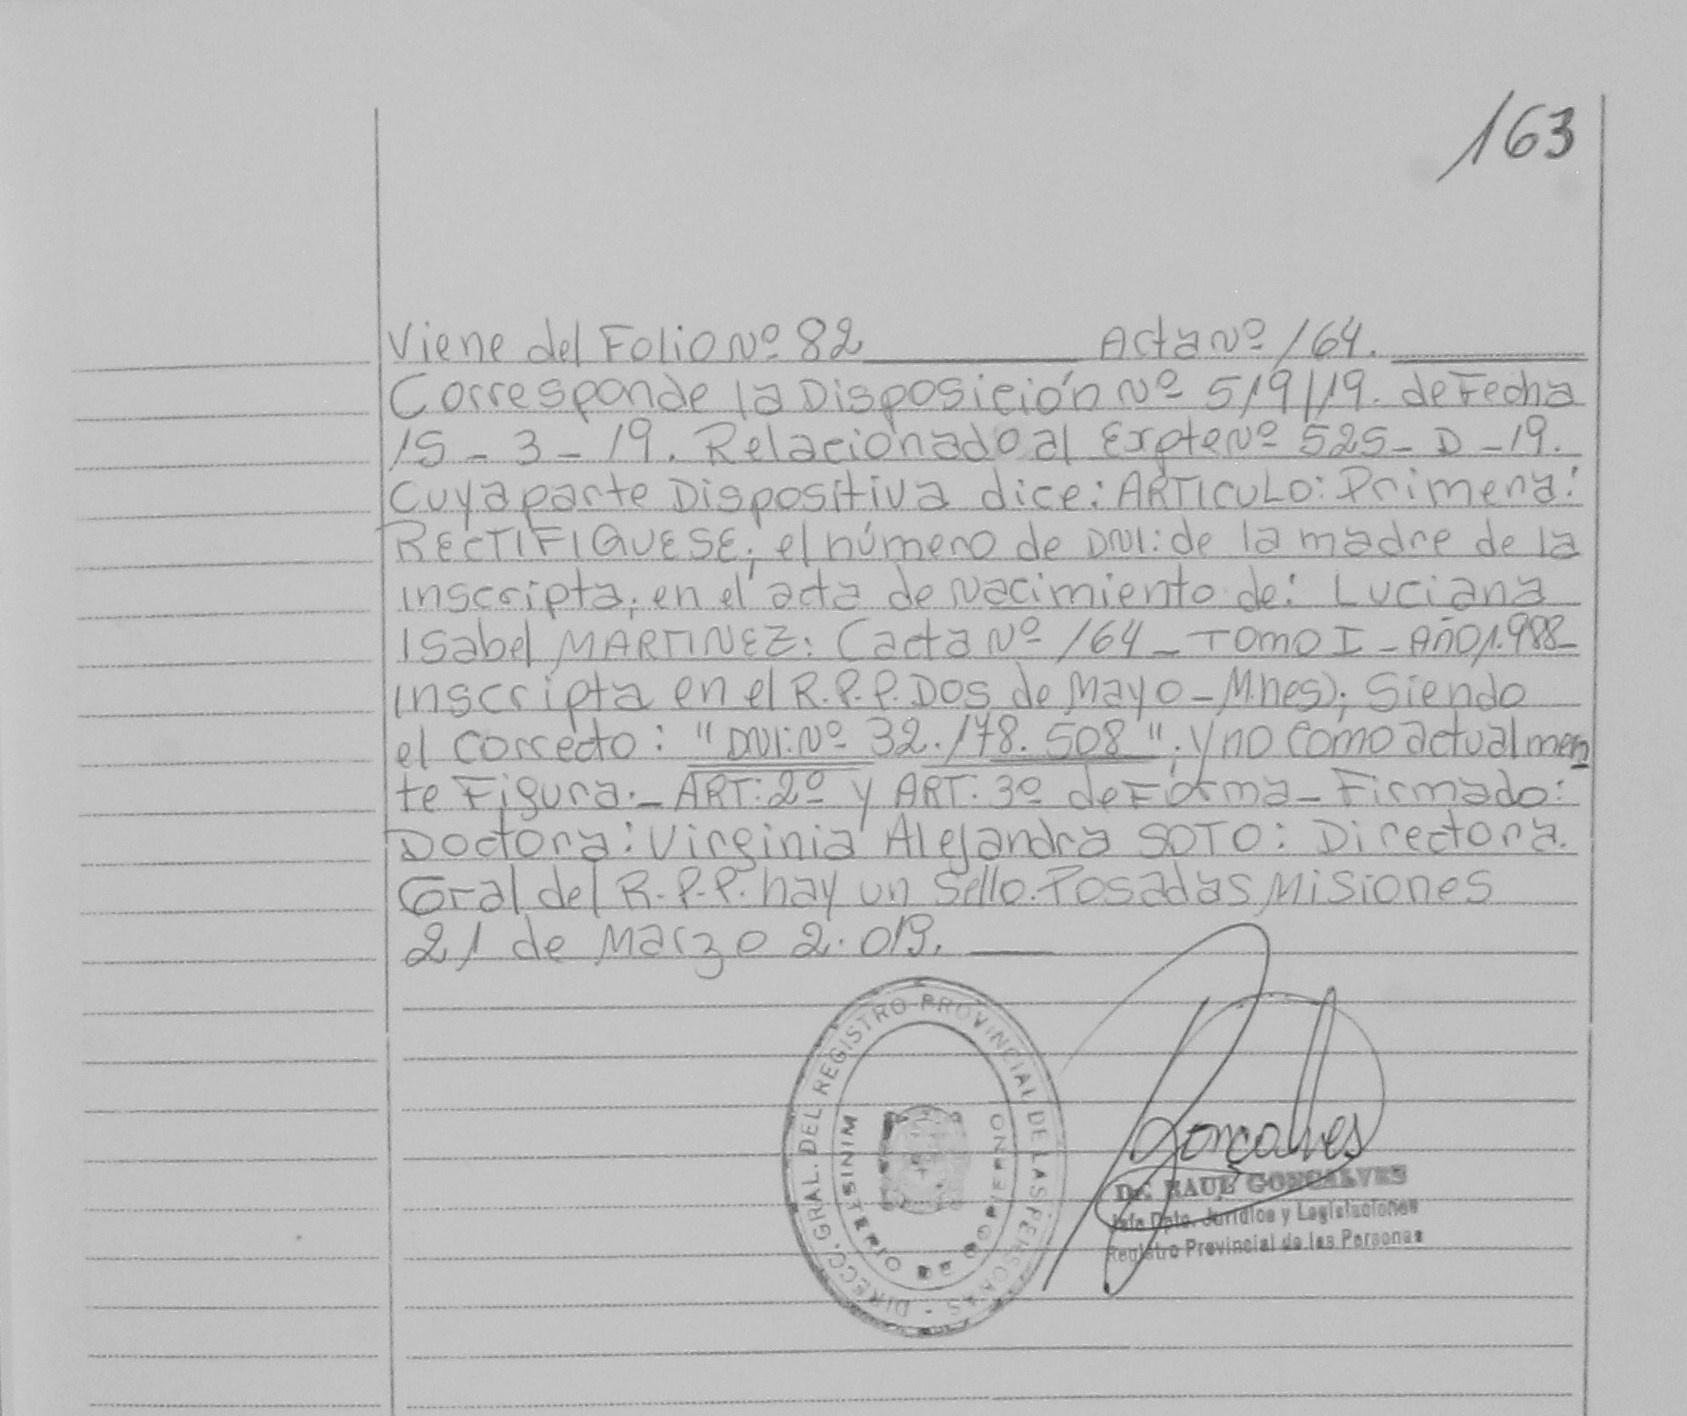 163
Viene del Folio Nº 82 Acta Nº 164.
Corresponde la Disposición Nº 519/19. de Fecha
15 - 3 - 19. Relacionado al Expte Nº 525 - D - 19.
Cuya parte Dispositiva dice: ARTICULO: Primera:
RECTIFIQUESE; el número de DNI: de la madre de la
inscripta; en el acta de Nacimiento de: Luciana
Isabel MARTINEZ: (acta Nº 164 - TOMO I - AÑO 1.988 -
inscripta en el R.P.P. Dos de Mayo - Mnes); Siendo
el correcto: "DNI: Nº 32.178.508"; y no como actualmen
te Figura. - ART: 2º y ART: 3º de Forma - Firmado:
Doctora: Virginia Alejandra SOTO: Directora.
Gral del R.P.P. hay un Sello. Posadas Misiones
21 de Marzo 2.019.
DIRECC. GRAL. DEL REGISTRO PROVINCIAL DE LAS PERSONAS -
MINISTERIO DE GOBIERNO
Gonçalves
Dr. RAUL GONCALVES
Jefe Dpto. Jurídico y Legislaciones
Registro Provincial de las Personas